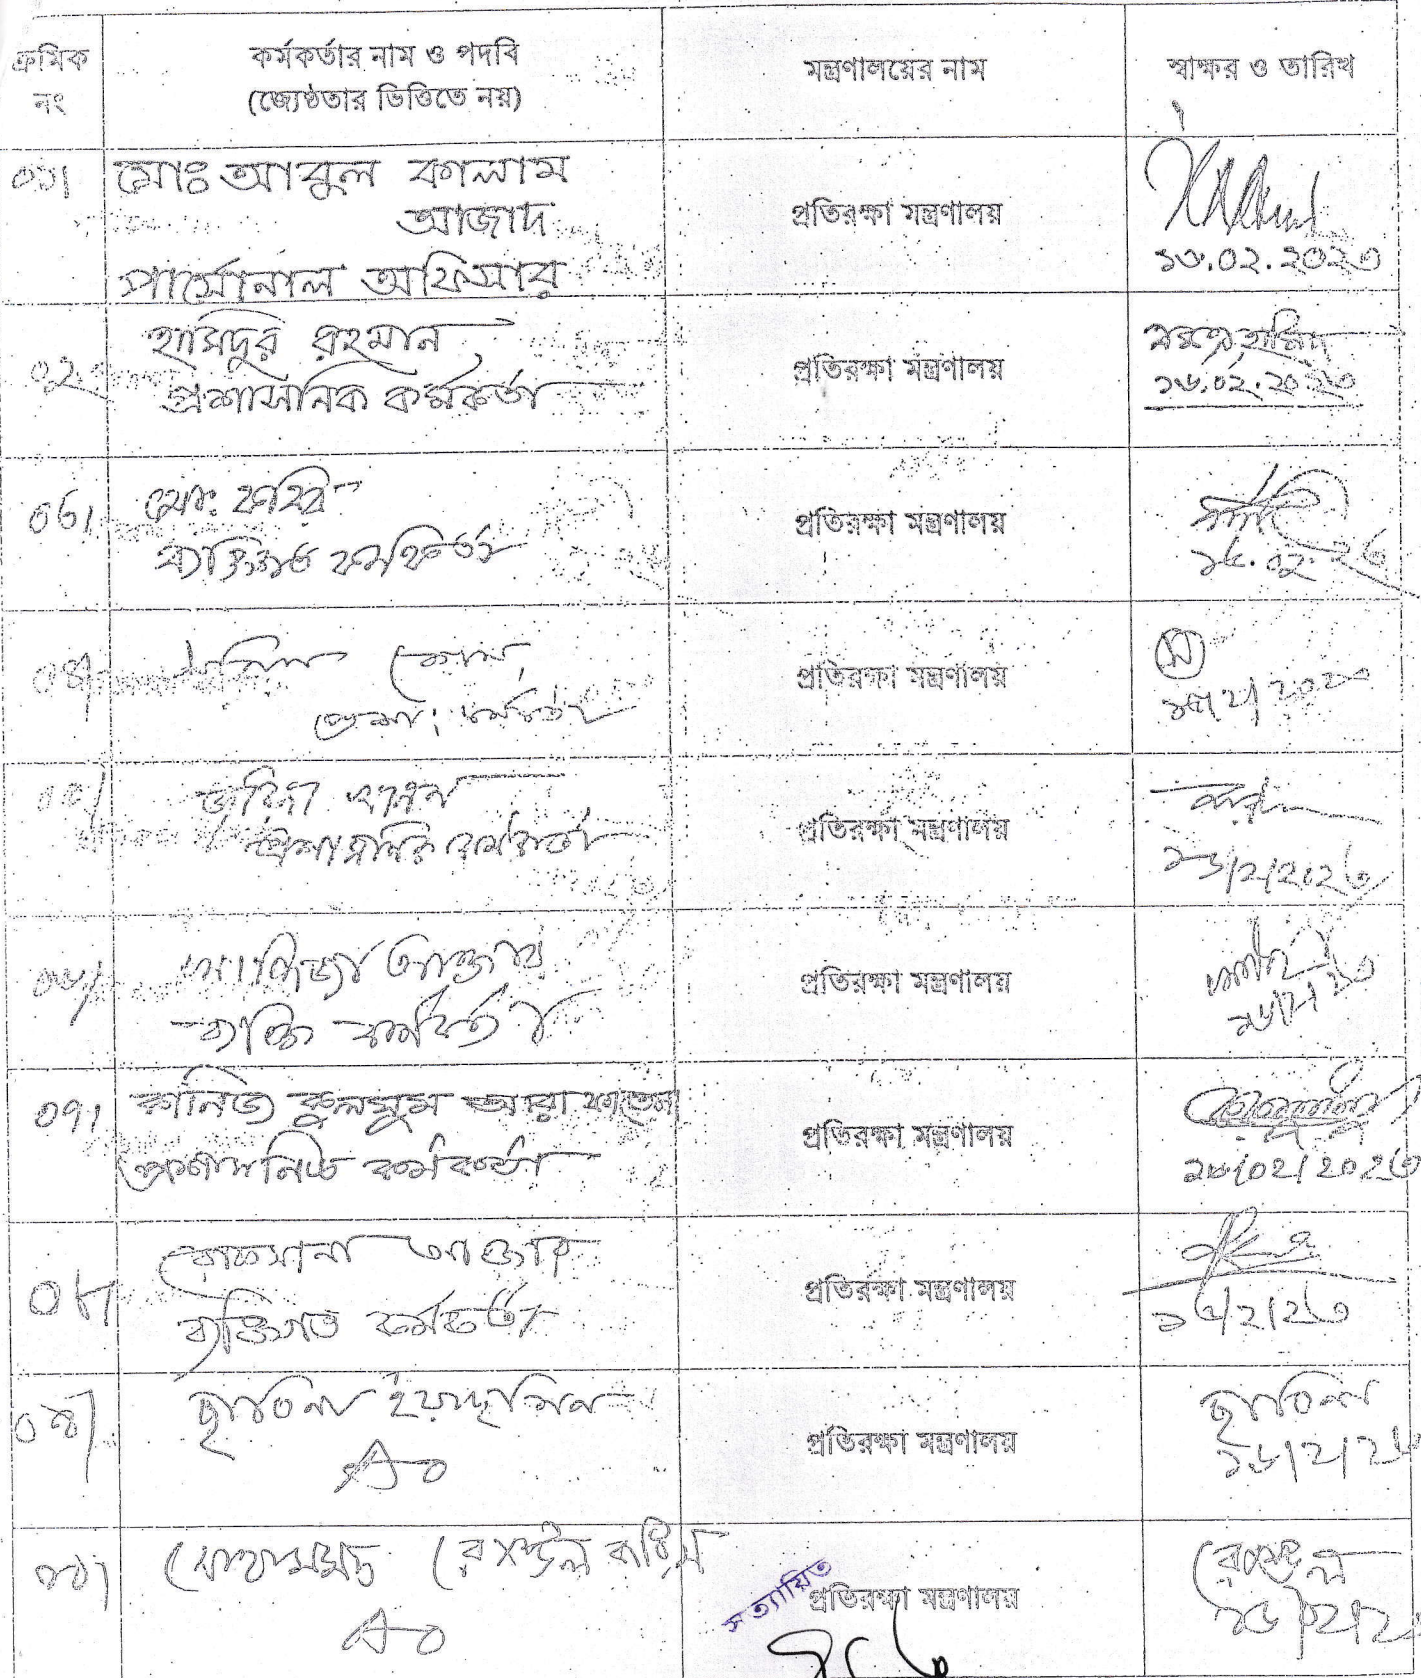 ক্রমিক নং
কর্মকর্তার নাম ও পদবি
(জ্যেষ্ঠতার ভিত্তিতে নয়)
মন্ত্রণালয়ের নাম
স্বাক্ষর ও তারিখ
০১।
মোঃ আবুল কালাম
আজাদ
পার্সোনাল অফিসার
প্রতিরক্ষা মন্ত্রণালয়
১৩.০২.২০২৩
০২
হামিদুর রহমান
প্রশাসনিক কর্মকর্তা
প্রতিরক্ষা মন্ত্রণালয়
১৩.০২.২০২৩
০৩।
মোঃ কবির
ব্যক্তিগত কর্মকর্তা
প্রতিরক্ষা মন্ত্রণালয়
০৪।
হোসেন
প্রশাঃ কর্মকর্তা
প্রতিরক্ষা মন্ত্রণালয়
০৫।
প্রশাসনিক কর্মকর্তা
প্রতিরক্ষা মন্ত্রণালয়
১৩/২/২০২৩
০৬।
আক্তার
ব্যক্তি কর্মকর্তা
প্রতিরক্ষা মন্ত্রণালয়
০৭।
কানিজ কুলসুম আরা
প্রশাসনিক কর্মকর্তা
প্রতিরক্ষা মন্ত্রণালয়
১৩/০২/২০২৩
০৮
রোকসানা আক্তার
ব্যক্তিগত কর্মকর্তা
প্রতিরক্ষা মন্ত্রণালয়
১৩/২/২৩
০৯।
ছাবিনা ইয়াছমিন
AO
প্রতিরক্ষা মন্ত্রণালয়
ছাবিনা
১৩/২/২৩
১০।
মোহাম্মদ রেজাউল করিম
AO
প্রতিরক্ষা মন্ত্রণালয়
সত্যায়িত